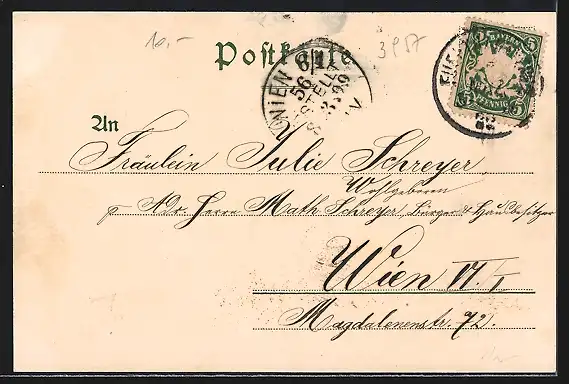 10,-
Postkarte
3957
WIEN 6/1
56
BESTELLT
99
BAYERN
5 5
5 PFENNIG 5
An
Fräulein Julie Schreyer
Wohlgeboren
p. Adr. Herrn Math. Schreyer, Bürger & Hausbesitzer
Wien VI/1
Magdalenenstr. 72.